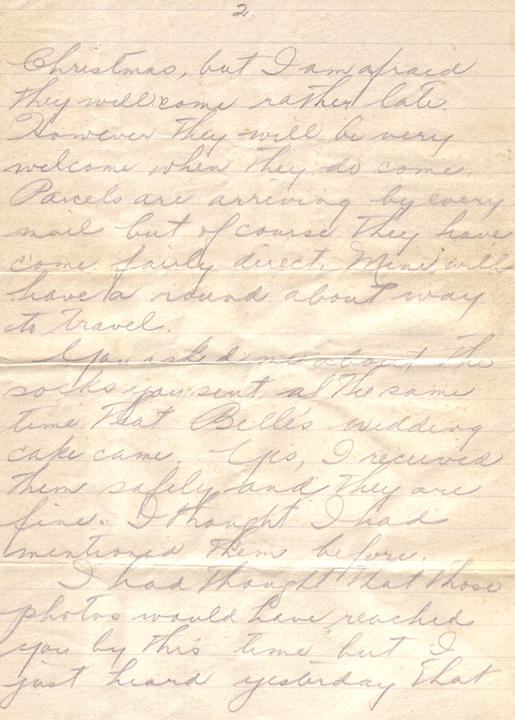 2.
Christmas, but I am afraid
they will come rather late.
However they will be very
welcome when they do come.
Parcels are arriving by every
mail but of course they have
come fairly direct. Mine will
have a round about way
to travel.
You asked me about the
socks you sent at the same
time that Belle's wedding
cake came. Yes, I received
them safely and they are
fine. I thought I had
mentioned them before.
I had thought that those
photos would have reached
you by this time but I
just heard yesterday that